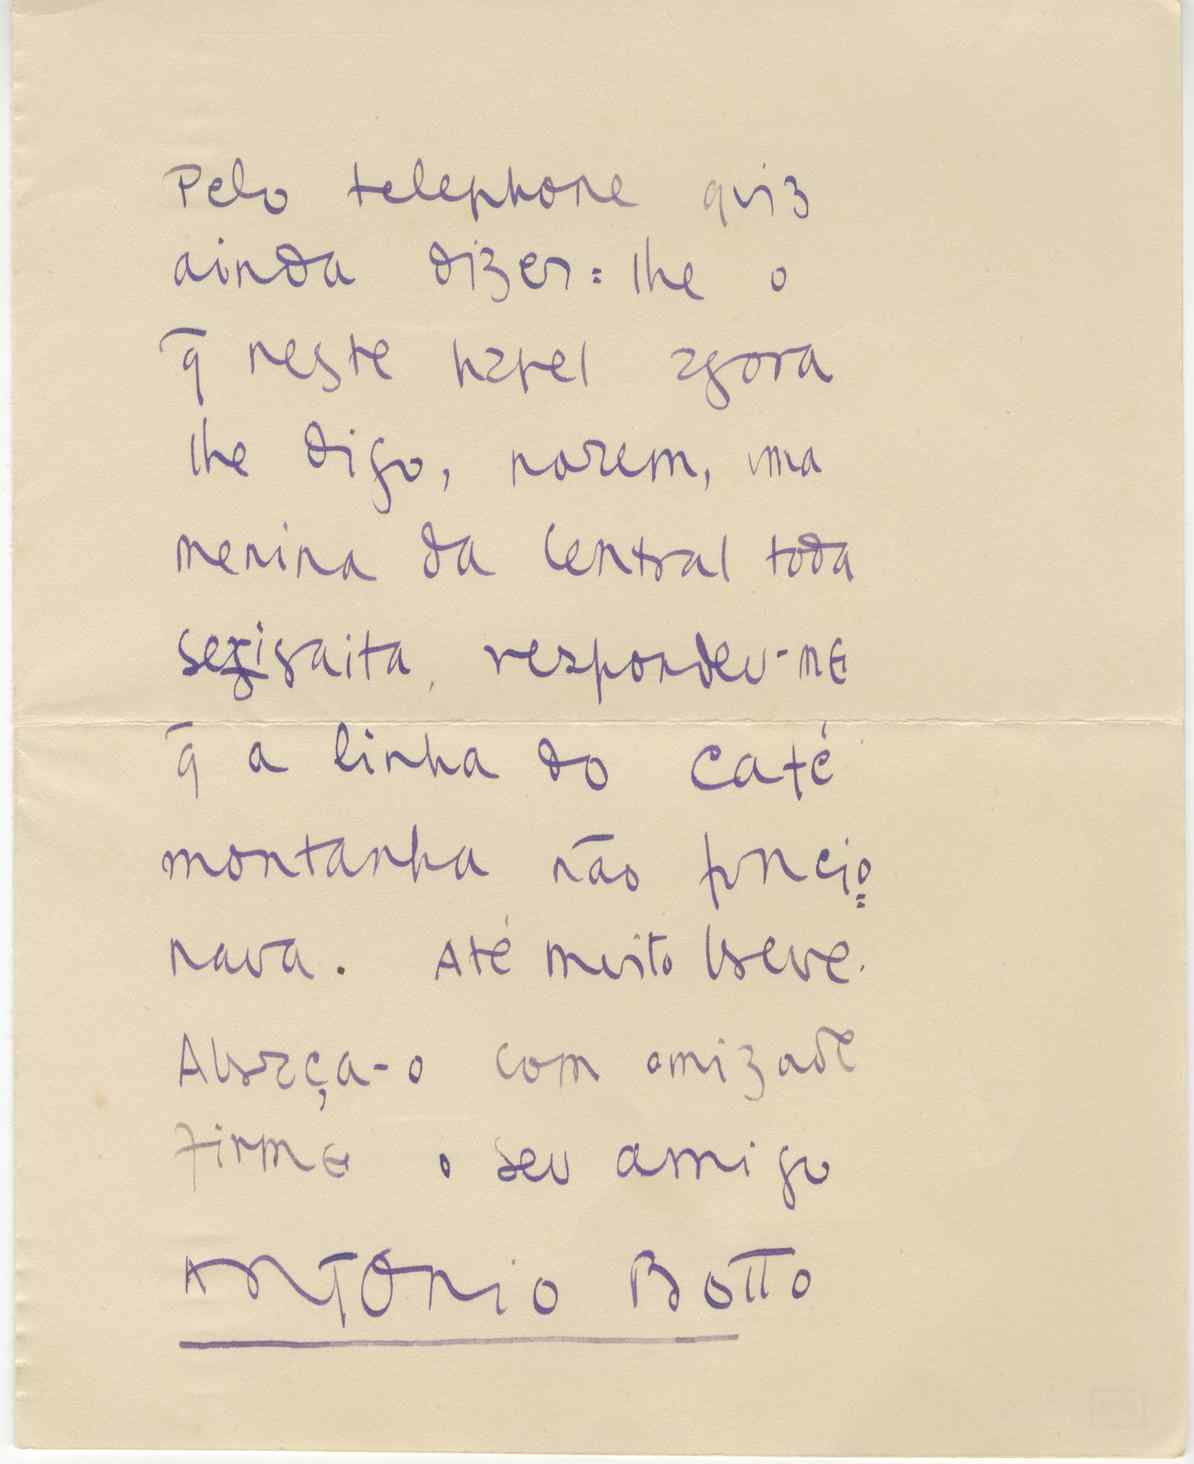 Pelo telephone quiz
ainda dizer=lhe o
q̄ neste papel agora
lhe digo, porem, uma
menina da Central toda
segigaita, respondeu-me
q̄ a linha do Café
montanha não funcio=
nava. Até muito breve.
Abraça-o com amizade
firme o seu amigo
António Botto